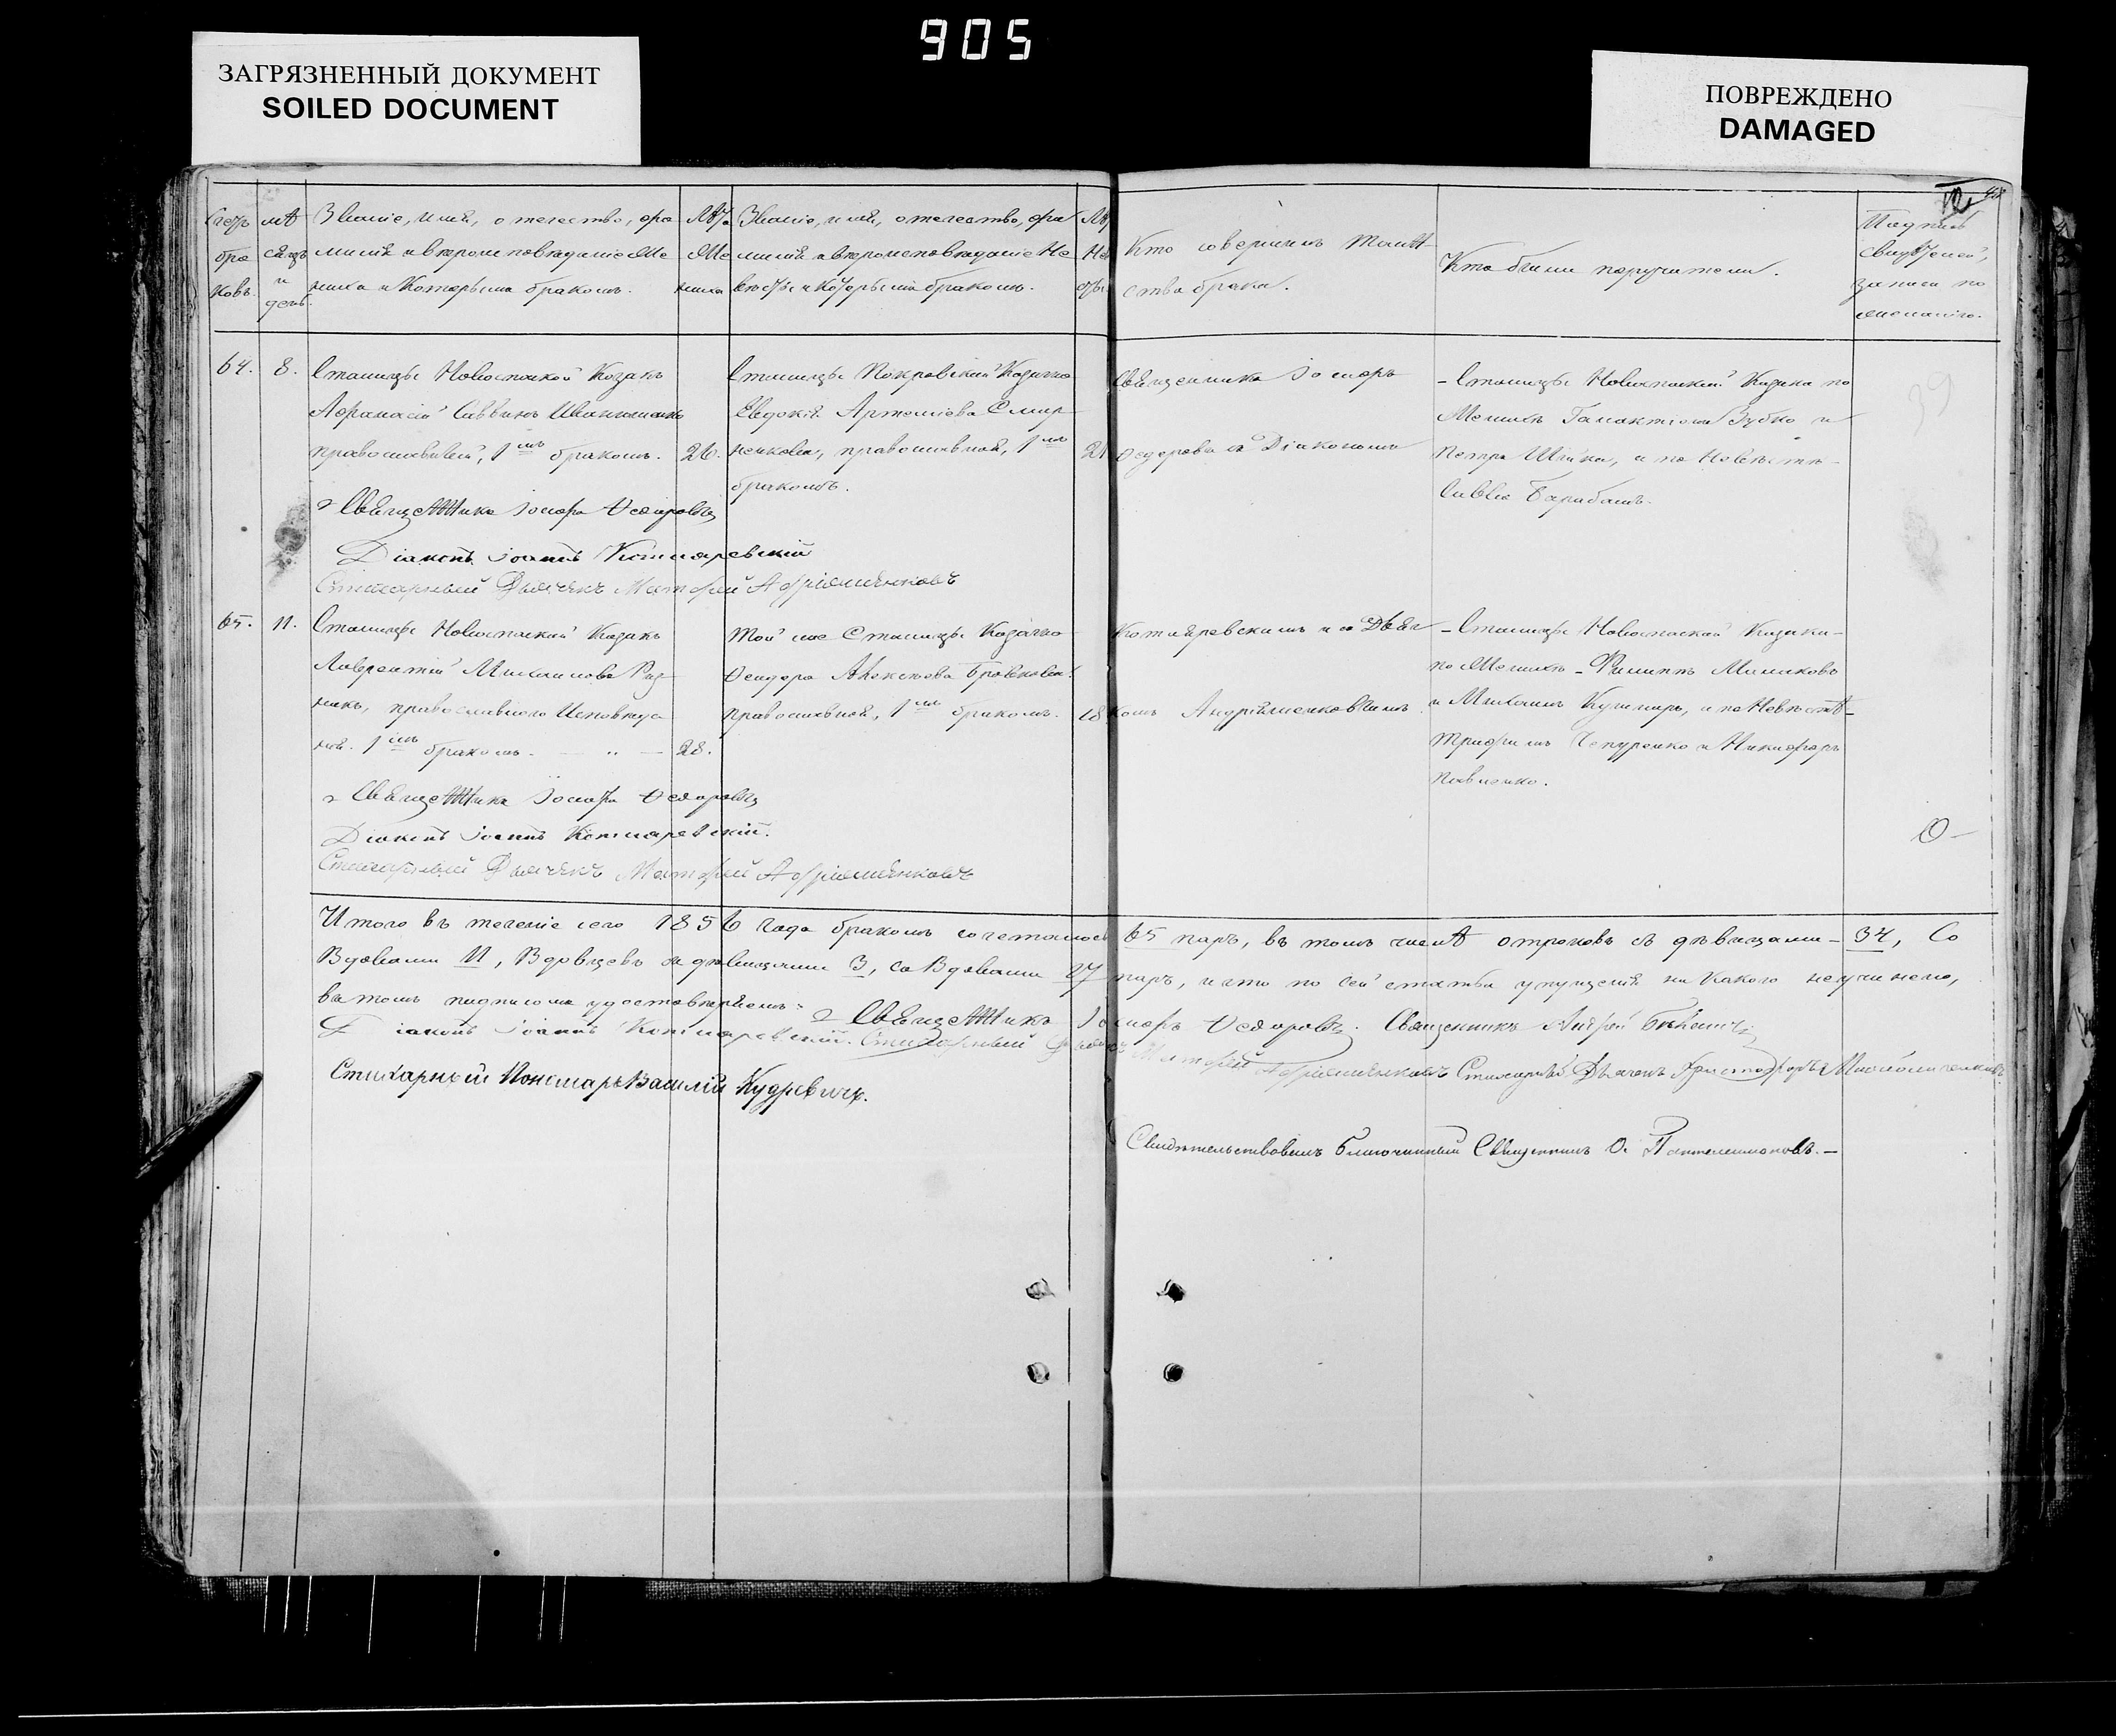 905
ЗАГРЯЗНЕННЫЙ ДОКУМЕНТ
SOILED DOCUMENT
ПОВРЕЖДЕНО
DAMAGED
Счетъ браковъ.
мѣсяцъ и день
Званіе, имя, отечество, фамилія и вѣроисповѣданіе Жениха и Которымъ бракомъ.
Лѣта Жениха
Званіе, имя, отечество, фамилія и вѣроисповѣданіе Невѣсты и Которымъ бракомъ.
Лѣ Нев сты
Кто совершалъ Таинства брака.
Кто были поручители.
Подпись Свидѣтелей, записи по желанію.
64. 8.
Станицы Новоспаской Козакъ
Афанасій Саввинъ
православный, 1мъ бракомъ. 26.
Станицы Покровской Козачка
Евдокія Артеміева
православная, 1мъ 21
бракомъ.
Священникъ Іосифъ
Федоровъ съ Діакономъ
- Станицы Новоспаской Козаки по
Женихѣ Галактіонъ Зубко и
Петръ и по Невѣстѣ -
Савва Барабашъ.
Священникъ Іосифъ Федоровъ
Діаконъ Іоаннъ Котляревскій
Стихарный Дьячекъ Матфей Андріяшенковъ
65. 11.
Станицы Новоспаской Козакъ
Лаврентій Михаиловъ Рѣз
никъ, православнаго Исповѣда
нія. 1мъ бракомъ. - 28.
Той же Станицы Козачка
Феодора Алексѣева
православная, 1мъ бракомъ. 18
Котляревскимъ и съ Дьяч
комъ Андріяшенковымъ
- Станицы Новоспаской Козаки -
по Женихѣ - Филиппъ
и Михаилъ Кушниръ, и по Невѣстѣ -
Трифилъ Чепуренко и Никифоръ
Павленко.
Священникъ Іосифъ Федоровъ
Діаконъ Іоаннъ Котляревскій.
Стихарный Дьячекъ Матфей Андріяшенковъ
Итого въ теченіе сего 1856 года бракомъ сочеталось 65 паръ, въ томъ числѣ отроковъ съ дѣвицами - 34, Со
Вдовами 11, Вдовцевъ съ дѣвицами 3, со Вдовами 17 паръ, и что по сей статьи упущенія ни какого неучинено,
въ томъ подписомъ удостовѣряемъ: Священникъ Іосифъ Федоровъ. Священникъ Андрей
Діаконъ Іоаннъ Котляревскій. Стихарный Дьячекъ Матфей Андріяшенковъ Стихарный Дьячекъ Христофоръ
Стихарный Пономарь Василій Кудревичъ.
Свидѣтельствовалъ Благочинный Священникъ О. Пантелеимоновъ. -